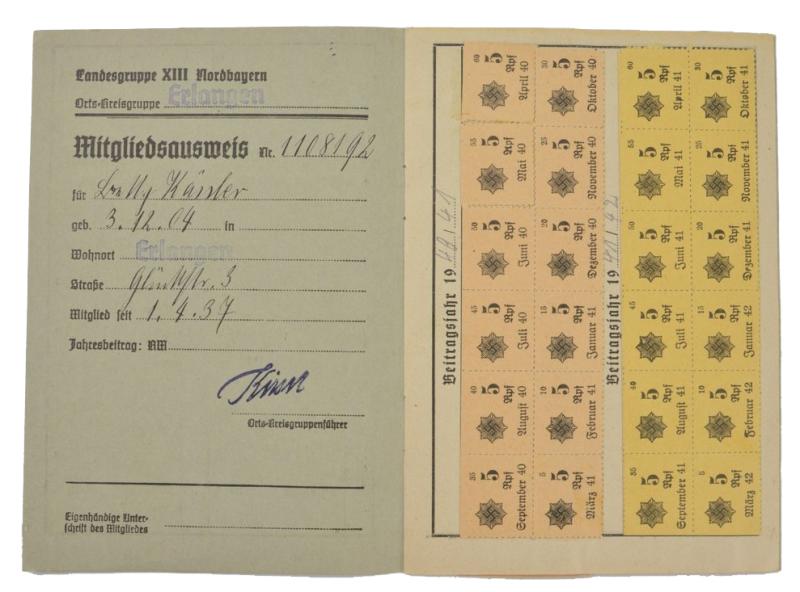 Landesgruppe XIII Nordbayern
Orts-Kreisgruppe Erlangen
Mitgliedsausweis Nr. 1108192
für Betty Kässler
geb. 3.12.04 in
Wohnort Erlangen
Straße Glückstr. 3
Mitglied seit 1.4.37
Jahresbeitrag: RM
Orts-Kreisgruppenführer
Eigenhändige Unter-
schrift des Mitgliedes
Beitragsjahr 19 40/41
60 5 Rpf April 40
30 5 Rpf Oktober 40
55 5 Rpf Mai 40
25 5 Rpf November 40
50 5 Rpf Juni 40
20 5 Rpf Dezember 40
45 5 Rpf Juli 40
15 5 Rpf Januar 41
40 5 Rpf August 40
10 5 Rpf Februar 41
35 5 Rpf September 40
5 5 Rpf März 41
Beitragsjahr 19 41/42
60 5 Rpf April 41
30 5 Rpf Oktober 41
55 5 Rpf Mai 41
25 5 Rpf November 41
50 5 Rpf Juni 41
20 5 Rpf Dezember 41
45 5 Rpf Juli 41
15 5 Rpf Januar 42
40 5 Rpf August 41
10 5 Rpf Februar 42
35 5 Rpf September 41
5 5 Rpf März 42